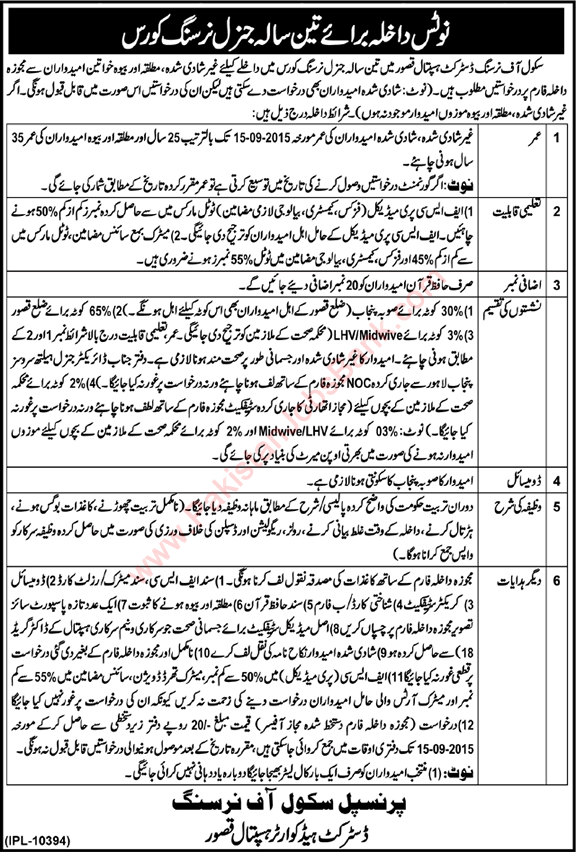 نوٹس داخلہ برائے تین سالہ جنرل نرسنگ کورس
سکول آف نرسنگ ڈسٹرکٹ ہسپتال قصور میں تین سالہ جنرل نرسنگ کورس میں داخلے کیلئے غیر شادی شدہ، مطلقہ اور بیوہ خواتین امیدواران سے مجوزہ
داخلہ فارم پر درخواستیں مطلوب ہیں۔ (نوٹ: شادی شدہ امیدواران بھی درخواست دے سکتی ہیں لیکن ان کی درخواستیں اس صورت میں قابل قبول ہونگی۔ اگر
غیر شادی شدہ، مطلقہ اور بیوہ موزوں امیدوار موجود نہ ہوں)۔ شرائط داخلہ درج ذیل ہیں:
1 عمر غیر شادی شدہ، شادی شدہ امیدواران کی عمر مورخہ 15-09-2015 تک بالترتیب 25 سال اور مطلقہ اور بیوہ امیدواران کی عمر 35
سال ہونی چاہئے۔
نوٹ: اگر گورنمنٹ درخواستیں وصول کرنے کی تاریخ میں توسیع کرتی ہے تو عمر مقرر کردہ تاریخ کے مطابق شمار کی جائے گی۔
2 تعلیمی قابلیت 1) ایف ایس سی پری میڈیکل (فزکس، کیمسٹری، بیالوجی لازمی مضامین) ٹوٹل مارکس میں سے حاصل کردہ نمبرز کم از کم 50% ہونے
چاہئیں۔ ایف ایس سی پری میڈیکل کے حامل اہل امیدواران کو ترجیح دی جائیگی۔ 2) میٹرک بمع سائنس مضامین، ٹوٹل مارکس میں
سے کم از کم 45% اور فزکس، کیمسٹری، بیالوجی مضامین میں ٹوٹل 55% نمبرز ہونے ضروری ہیں۔
3 اضافی نمبر صرف حافظ قرآن امیدواران کو 20 نمبر اضافی دیئے جائیں گے۔
4 نشستوں کی تقسیم 1) 30% کوٹہ برائے صوبہ پنجاب (ضلع قصور کے اہل امیدواران بھی اس کوٹہ کیلئے اہل ہونگے۔ 2) 65% کوٹہ برائے ضلع قصور
3) 3% کوٹہ برائے LHV/Midwive (محکمہ صحت کے ملازمین کو ترجیح دی جائیگی۔ عمر، تعلیمی قابلیت درج بالا شرائط نمبر 1 اور 2 کے
مطابق ہونی چاہئے۔ امیدوار کا غیر شادی شدہ اور جسمانی طور پر صحت مند ہونا لازمی ہے۔ دفتر جناب ڈائریکٹر جنرل ہیلتھ سروسز
پنجاب لاہور سے جاری کردہ NOC مجوزہ فارم کے ساتھ لف ہونا چاہئے ورنہ درخواست پر غور نہ کیا جائیگا) 4) 2% کوٹہ برائے محکمہ
صحت کے ملازمین کے بچوں کیلئے (مجاز اتھارٹی کا جاری کردہ سرٹیفکیٹ مجوزہ فارم کے ساتھ لف ہونا چاہئے ورنہ درخواست پر غور نہ
کیا جائیگا۔) نوٹ: 03% کوٹہ برائے Midwive/LHV اور 2% کوٹہ برائے محکمہ صحت کے ملازمین کے بچوں کیلئے موزوں
امیدوار نہ ہونے کی صورت میں بھرتی اوپن میرٹ کی بنیاد پر کی جائے گی۔
4 ڈومیسائل امیدوار کا صوبہ پنجاب کا سکونتی ہونا لازمی ہے۔
5 وظیفہ کی شرح دوران تربیت حکومت کی واضح کردہ پالیسی/شرح کے مطابق ماہانہ وظیفہ دیا جائیگا۔ (نامکمل تربیت چھوڑنے، کاغذات بوگس ہونے،
ہڑتال کرنے، داخلہ کے وقت غلط بیانی کرنے، رولز، ریگولیشن اور ڈسپلن کی خلاف ورزی کی صورت میں حاصل کردہ وظیفہ سرکار کو
واپس جمع کرانا ہوگا)
6 دیگر ہدایات مجوزہ داخلہ فارم کے ساتھ کاغذات کی مصدقہ نقول لف کرنا ہونگی۔ 1) سند ایف ایس سی، سند میٹرک/رزلٹ کارڈ 2) ڈومیسائل
3) کریکٹر سرٹیفکیٹ 4) شناختی کارڈ/ب فارم 5) سند حافظ قرآن 6) مطلقہ اور بیوہ ہونے کا ثبوت 7) ایک عدد تازہ پاسپورٹ سائز
تصویر مجوزہ فارم پر چسپاں کریں 8) اصل میڈیکل سرٹیفکیٹ برائے جسمانی صحت جو سرکاری و نیم سرکاری ہسپتال کے ڈاکٹر گریڈ
18) سے حاصل کردہ ہو 9) شادی شدہ امیدوار نکاح نامہ کی نقل لف کرے 10) نامکمل اور مجوزہ داخلہ فارم کے بغیر دی گئی درخواست
پر قطعی غور نہ کیا جائیگا 11) ایف ایس سی (پری میڈیکل) میں 50% سے کم نمبر، میٹرک تھرڈ ڈویژن، سائنس مضامین میں 55% سے کم
نمبر اور میٹرک آرٹس والی حامل امیدواران درخواست دینے کی زحمت نہ کریں کیونکہ ان کی درخواست پر غور نہیں کیا جائیگا
12) درخواست (مجوزہ داخلہ فارم دستخط شدہ مجاز آفیسر) قیمت مبلغ 20/- روپے دفتر زیر دستخطی سے حاصل کر کے مورخہ
15-09-2015 تک دفتری اوقات میں جمع کروائی جا سکتی ہیں، مقررہ تاریخ کے بعد موصول ہونیوالی درخواستیں قابل قبول نہ ہونگی۔
نوٹ: (1) منتخب امیدواران کو صرف ایک بار کال لیٹر بھیجا جائیگا دوبارہ یاد دہانی نہیں کرائی جائیگی۔
پرنسپل سکول آف نرسنگ
ڈسٹرکٹ ہیڈ کوارٹر ہسپتال قصور
(IPL-10394)
PakistanJobsBank.com